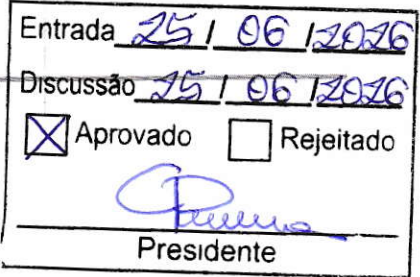 Entrada 25 / 06 / 2026
Discussão 25 / 06 / 2026
Aprovado Rejeitado
Presidente